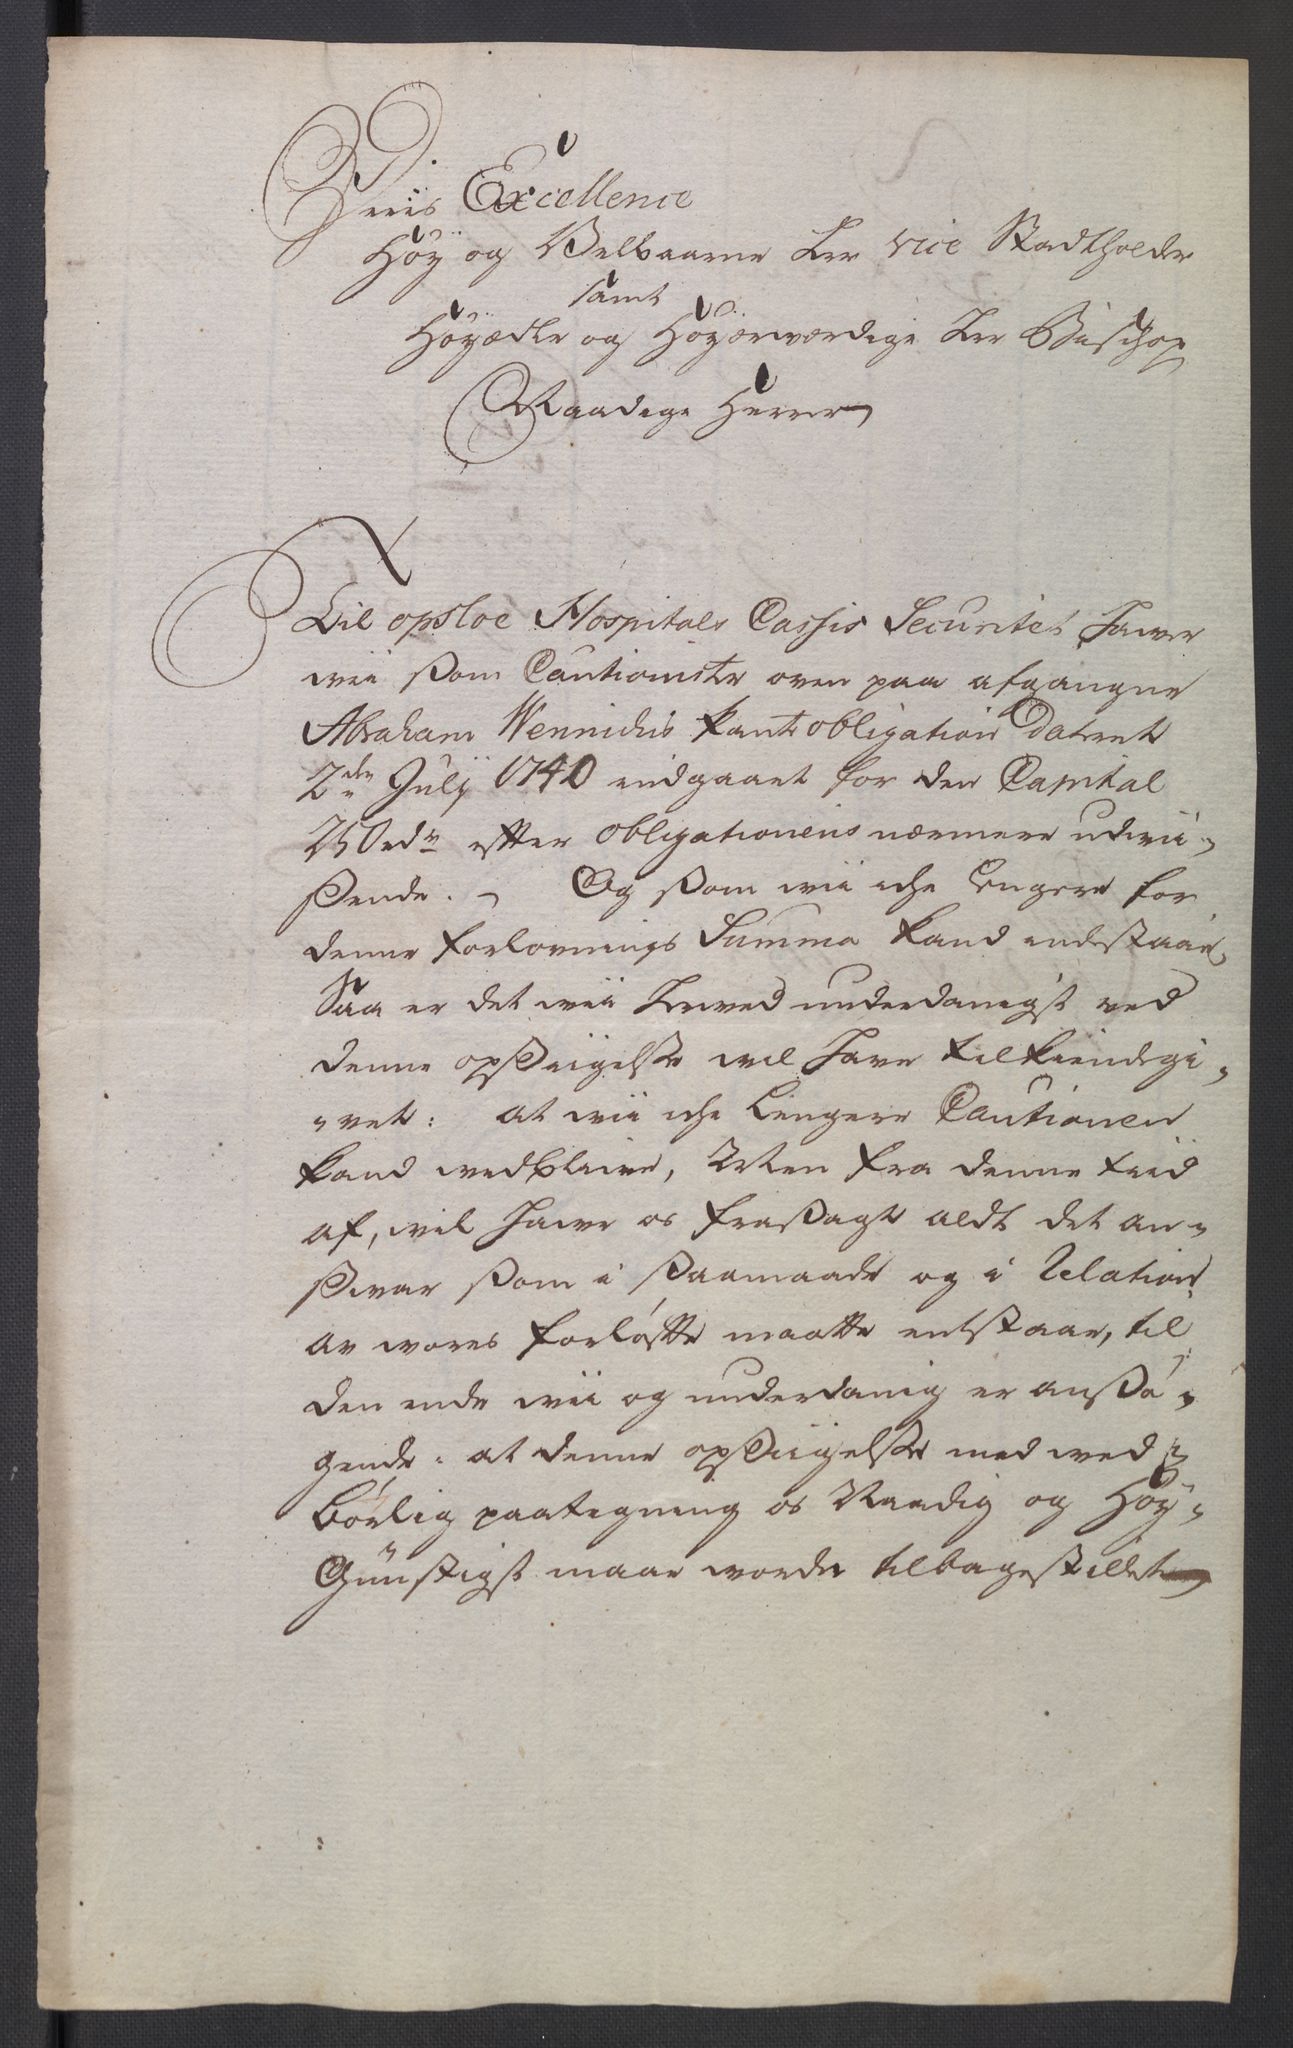 Deris Excellence
Høy og Velbaarne Her Vice Stadtholder
samt
Høyædle og Høyærværdige Her Bischop
Naadige Herrer
Til opsloe Hospitals Cassis Securitet hawer
wii som Cautionister oven paa afgangne
Abraham Wennichis pante obligation Dateret
2den Julij 1740 indgaaet for den Capital
250 rdr efter obligationens nærmere udwii-
sende. Og som wii iche lengere for
denne forlovnings Summa kand indestaae,
Saa er det wii herved underdanigst ved
denne opsiigelse wil have tilkiendegi-
vet: at wii iche lengere Cautionen
kand wedblive, Men fra denne tiid
af, wil hawe os frasagt aldt det an-
swar som i saamaade og i Relation
av wores forløfte maatte entstaae, til
den ende wii og underdanig er ansø-
gende: at denne opsiigelse med wed-
børlig paategning os Naadig og Høy-
Günstigst maae worde tilbagestillet